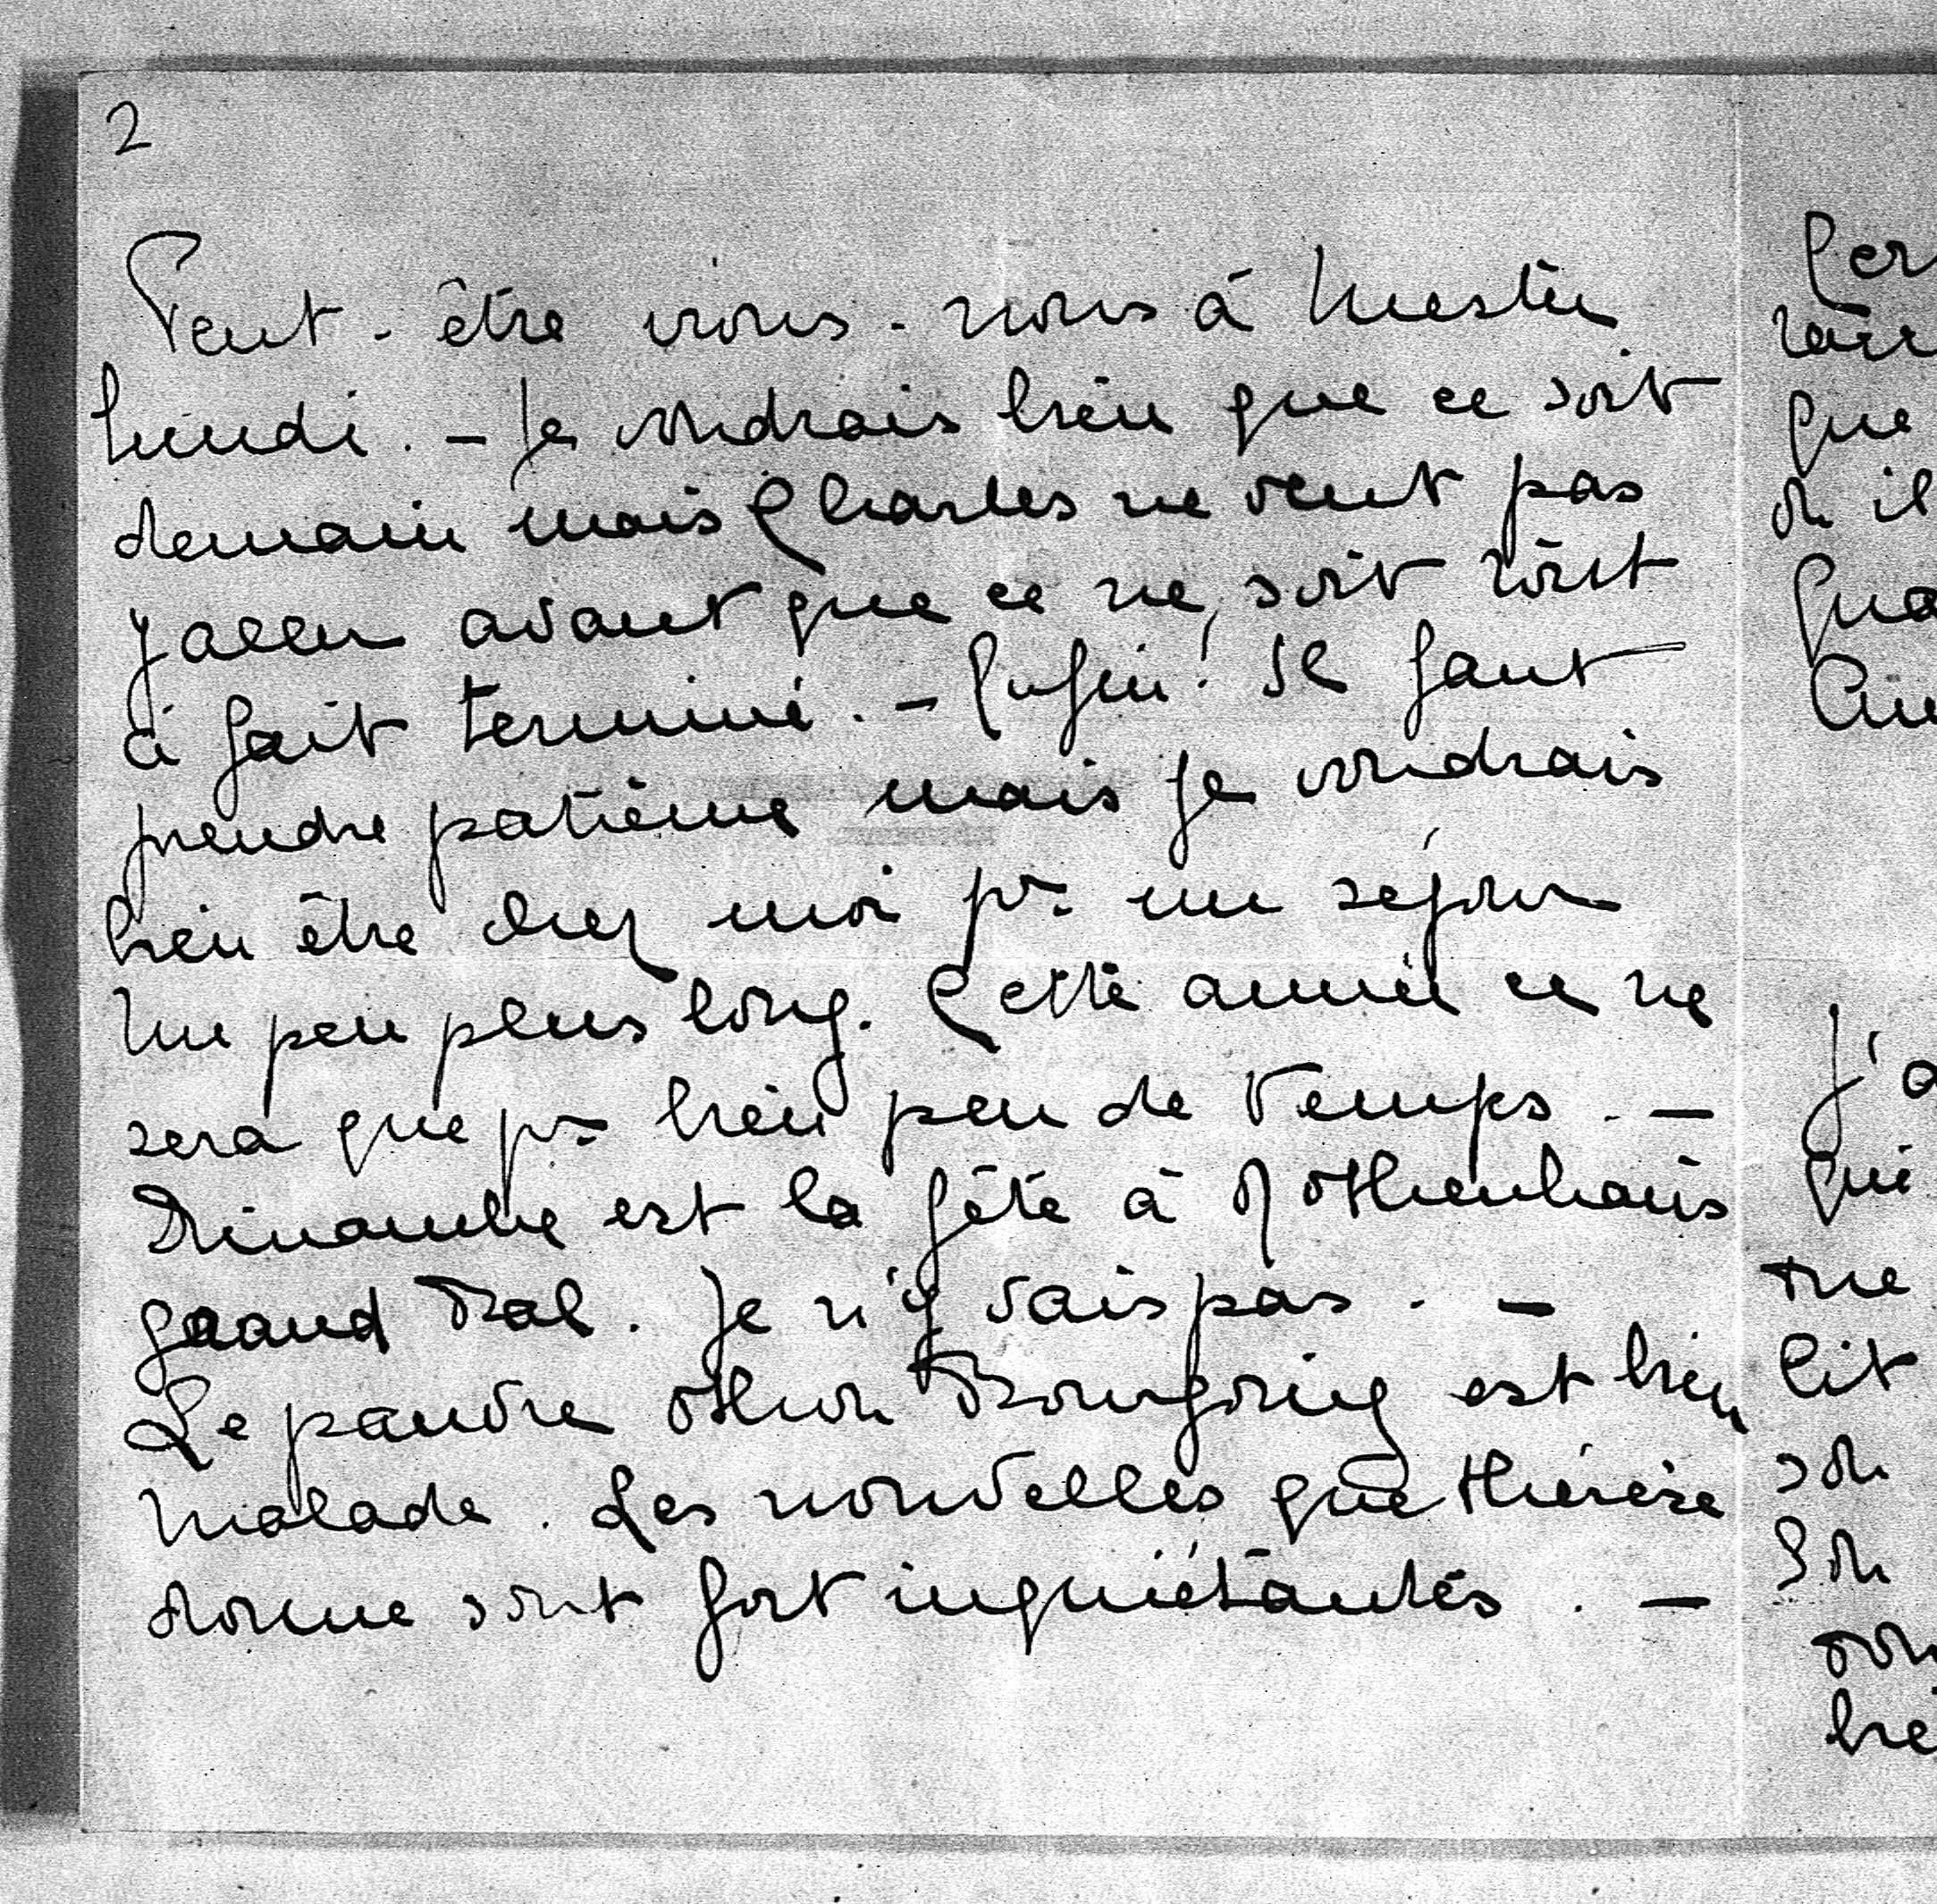 2
Peut-être irons-nous à Mestin
lundi. - Je voudrais bien que ce soit
demain mais Charles ne veut pas
y aller avant que ce ne soit tout
à fait terminé. - Enfin! Il faut
prendre patience mais je voudrais
bien être chez moi pr un séjour
un peu plus long. Cette année ce ne
sera que pr bien peu de temps. -
Dimanche est la fête à Rothenhaus
grand bal. Je n'y vais pas. -
Le pauvre Othon Bourgoing est bien
malade. Les nouvelles que Thérèse
donne sont fort inquiétantes. -
que
il
J'a
qui
lit